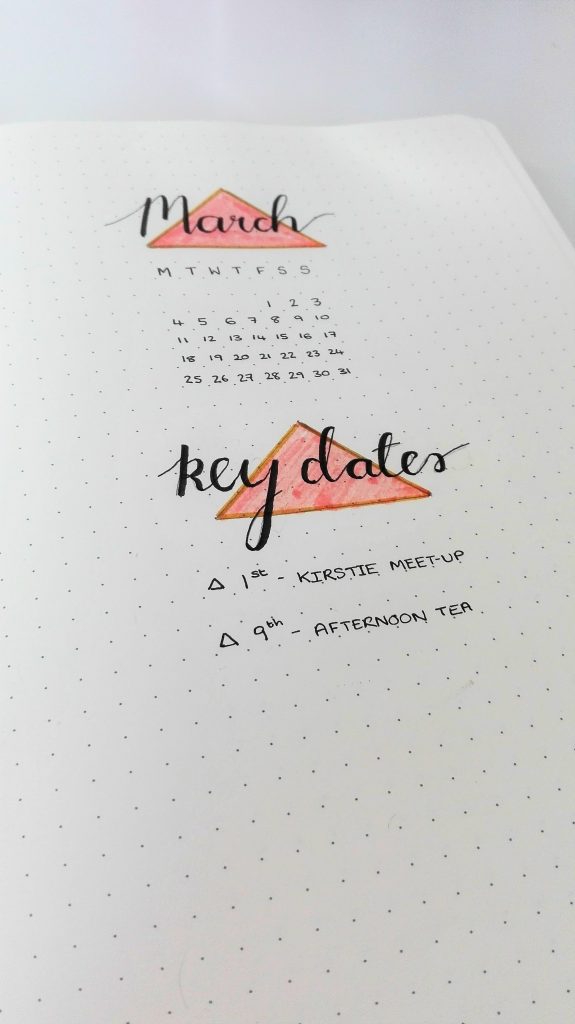 March
M T W T F S S
1 2 3
4 5 6 7 8 9 10
11 12 13 14 15 16 17
18 19 20 21 22 23 24
25 26 27 28 29 30 31
key dates
Δ 1st - KIRSTIE MEET-UP
Δ 9th - AFTERNOON TEA